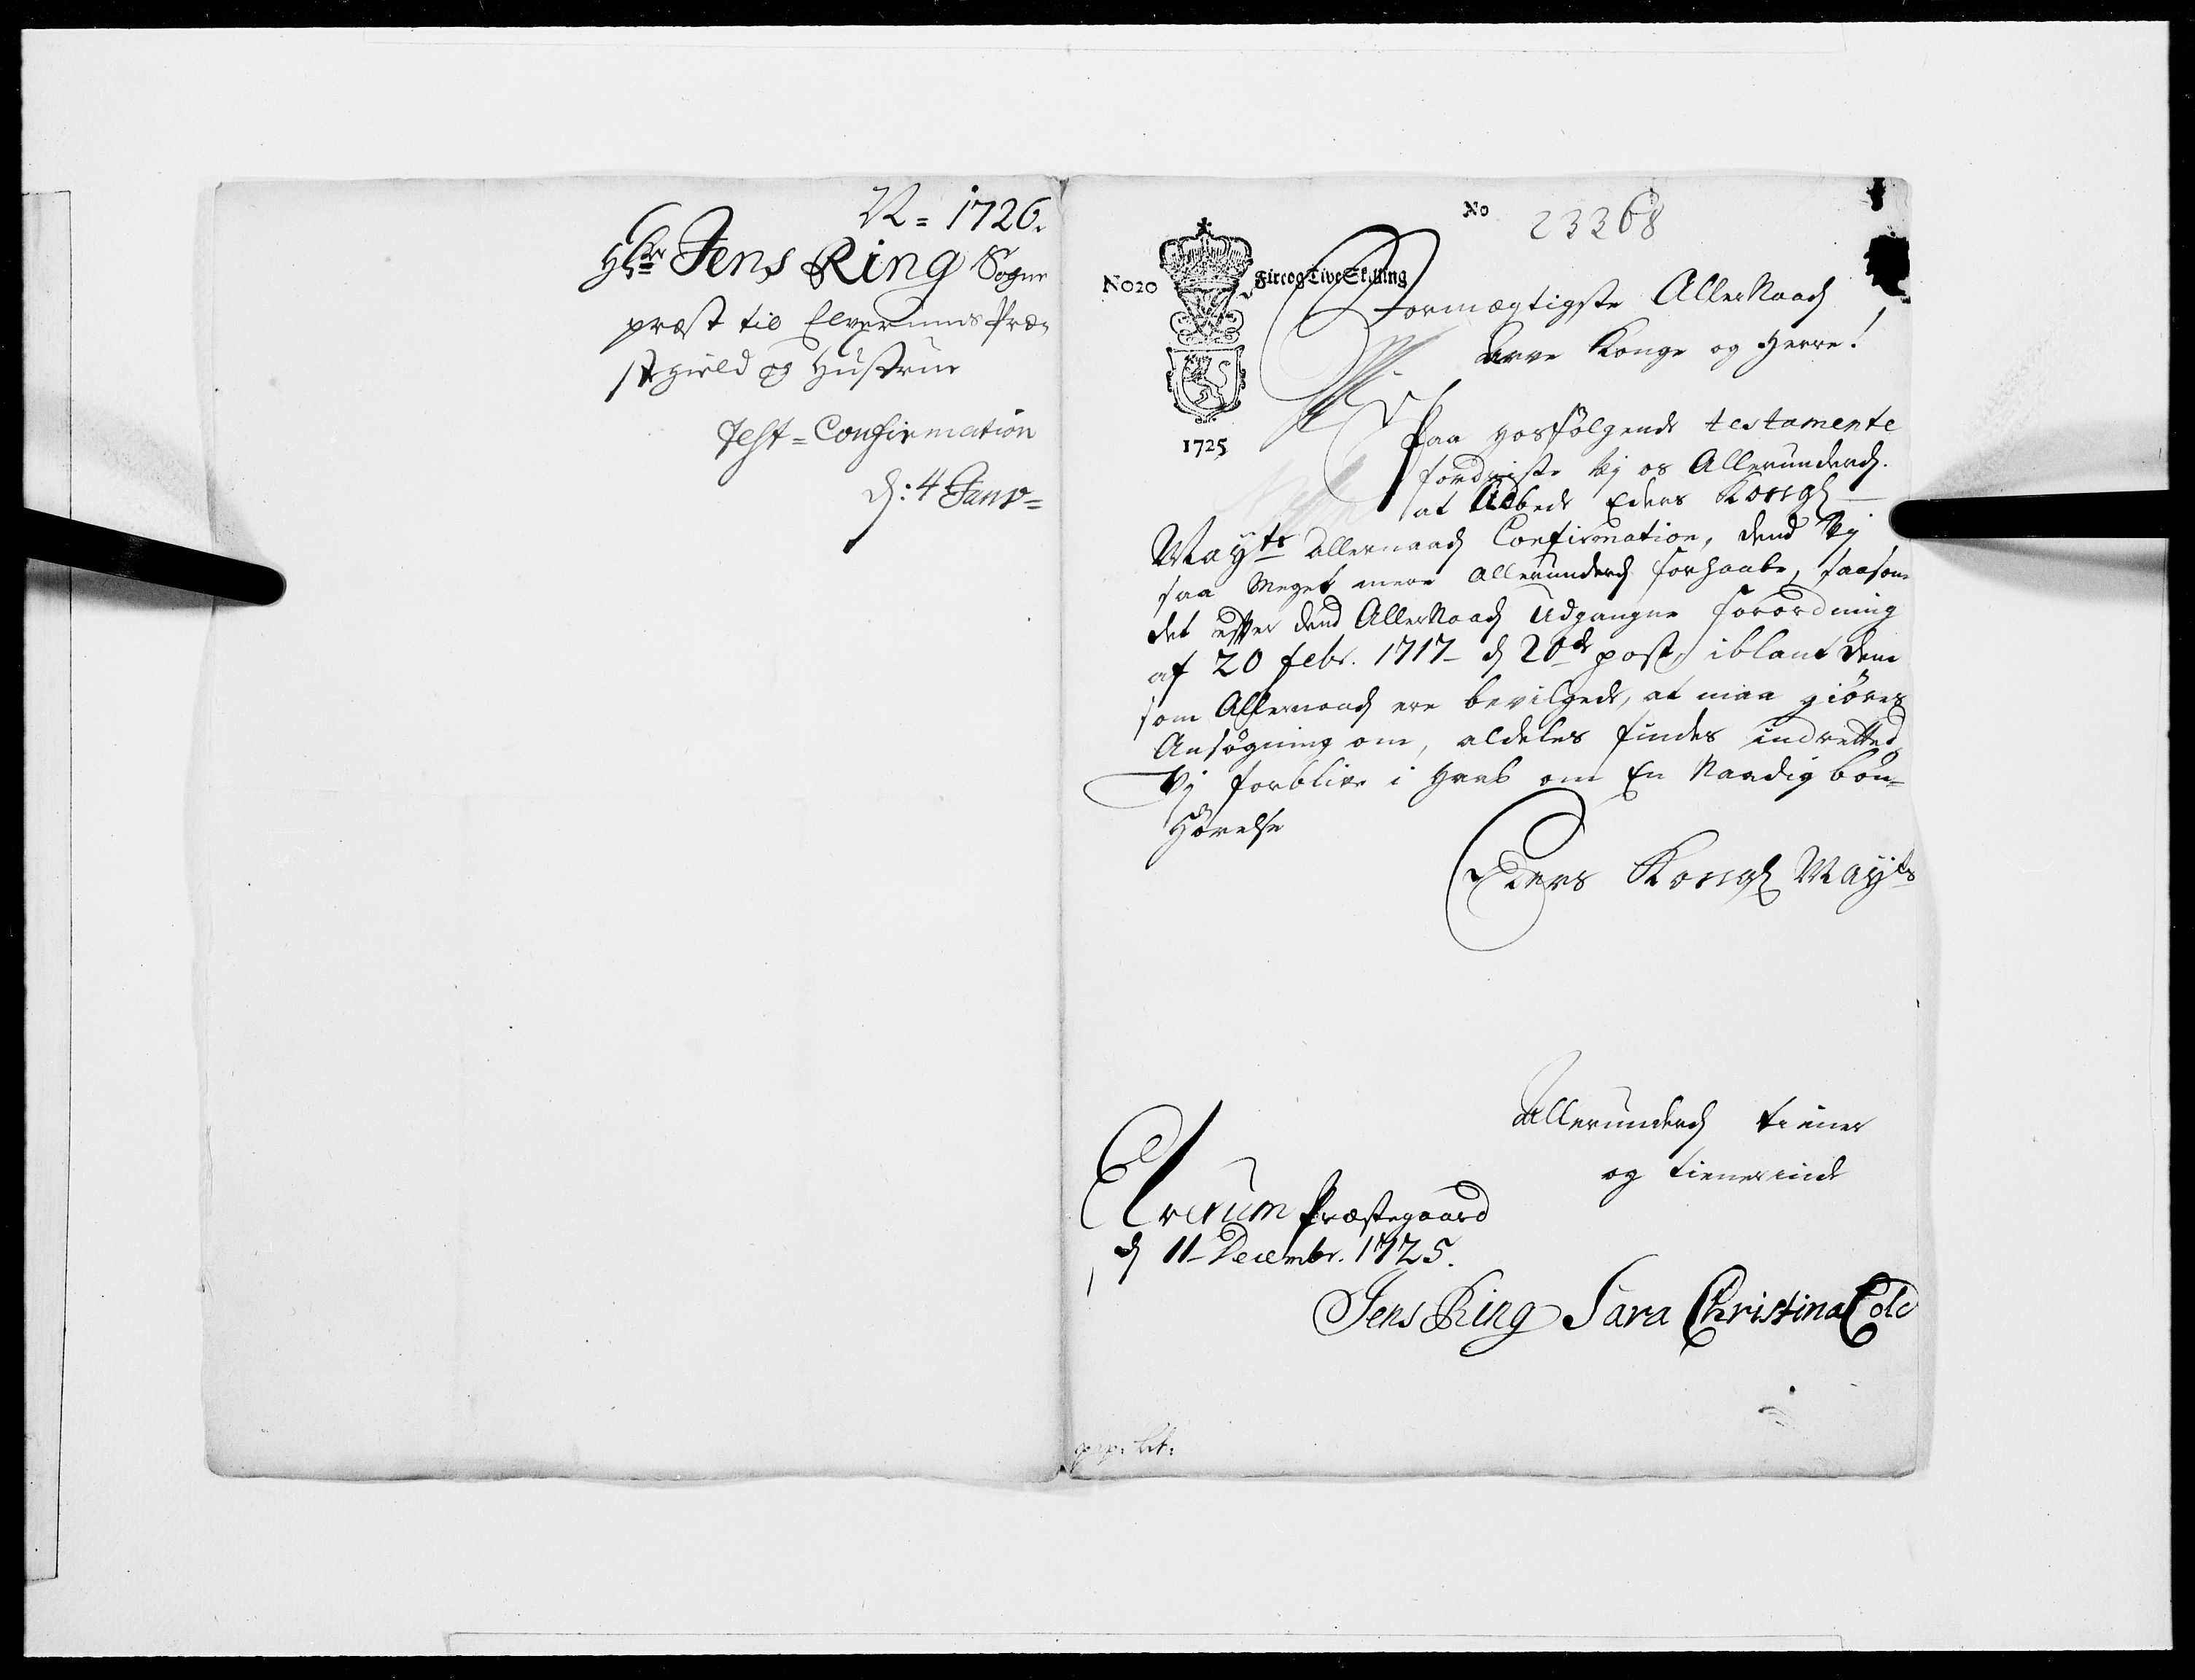 N = 1726.
Hr Jens Ring Sogne
præst til Elverums Præ-
stegield og Hustrue
Test = Confirmation
d: 4 Janv=
No 23368
No 20
Fire og Tive Skilling
1725
Stormægtigste AllerNaadꝭ
Arve Konge og Herre!
Paa hosfølgende testamente
fordriste Vj os Allerunderdꝭ.
at Udbede Eders Kongl
Mayts allernaadꝭ Confirmation, dend Vj
saa Meget mere allerunderdꝭ forhaabe, saasom
det efter dend AllerNaadꝭ Udgangne forordning
af 20 febr. 1717 d 20de post, iblant dem
som Allernaadꝭ ere bevilgede, at maa giøres
Ansøgning om, aldeles findes indrettet,
Vj forblive i Haab om En Naadig bøn-
Hørelse
Eders Kongl Mayts
Allerunderdꝭ tiener
og tienerinde
Elverum Præstegaard
d 11 Decembr. 1725.
Jens Ring Sara Christina Cold